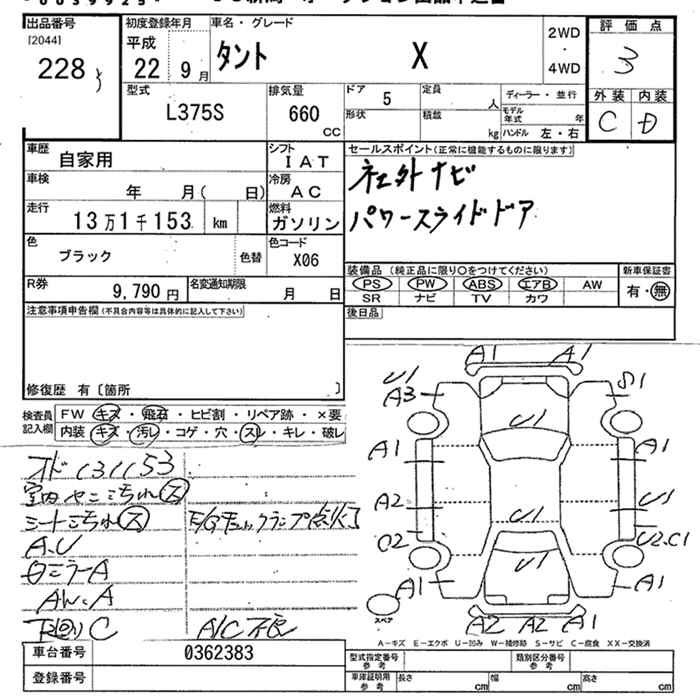 出品番号
[2044]
228
初度登録年月
平成
22 9月
車名・グレード
タント X
2WD
・
4WD
評価点
3
外装 内装
C D
型式
L375S
排気量
660
cc
ドア 5
形状
定員 人
積載 kg
ディーラー・並行
モデル年式 年
ハンドル 左・右
車歴
自家用
シフト
IAT
車検
年 月( 日)
冷房
AC
走行
13万1千153 km
燃料
ガソリン
色
ブラック
色替
色コード
X06
R券
9,790円
名変通知期限
月 日
セールスポイント(正常に機能するものに限ります)
社外ナビ
パワースライドドア
装備品(純正品に限り○をつけてください)
PS PW ABS エアB AW
SR ナビ TV カワ
新車保証書
有・無
後日品
注意事項申告欄(不具合内容等は具体的に記入して下さい)
修復歴 有〔箇所 〕
検査員記入欄
FW キズ・飛石・ヒビ割・リペア跡・×要
内装 キズ・汚レ・コゲ・穴・スレ・キレ・破レ
オド 131153
室内ヤニ汚れ ス
シート汚れ ス
A.U
AW.A
下回りC A/C不良
A1 A1
U1
A3 S1
U1
A1 A1
A2 U1
U1
C2 U2.C1
U1
A1 A1
スペア
A2 A2 A1
A-キズ E-エクボ U-凹み W-補修跡 S-サビ C-腐食 XX-交換済
車台番号
0362383
登録番号
型式指定番号
参考
類別区分番号
参考
車庫証明用
参考
長さ cm
幅 cm
高さ cm